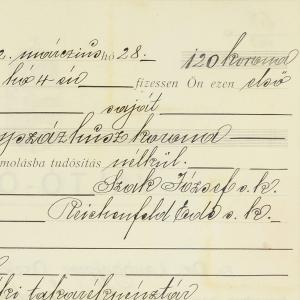 2. márczius hó 28. 120 korona
hó 4 én fizessen Ön ezen első
saját
egyszázhusz korona
ámolásba tudósitás nélkül.
Szak József s. k.
Reichenfeld Ede s. k.
ki takarékpénztár